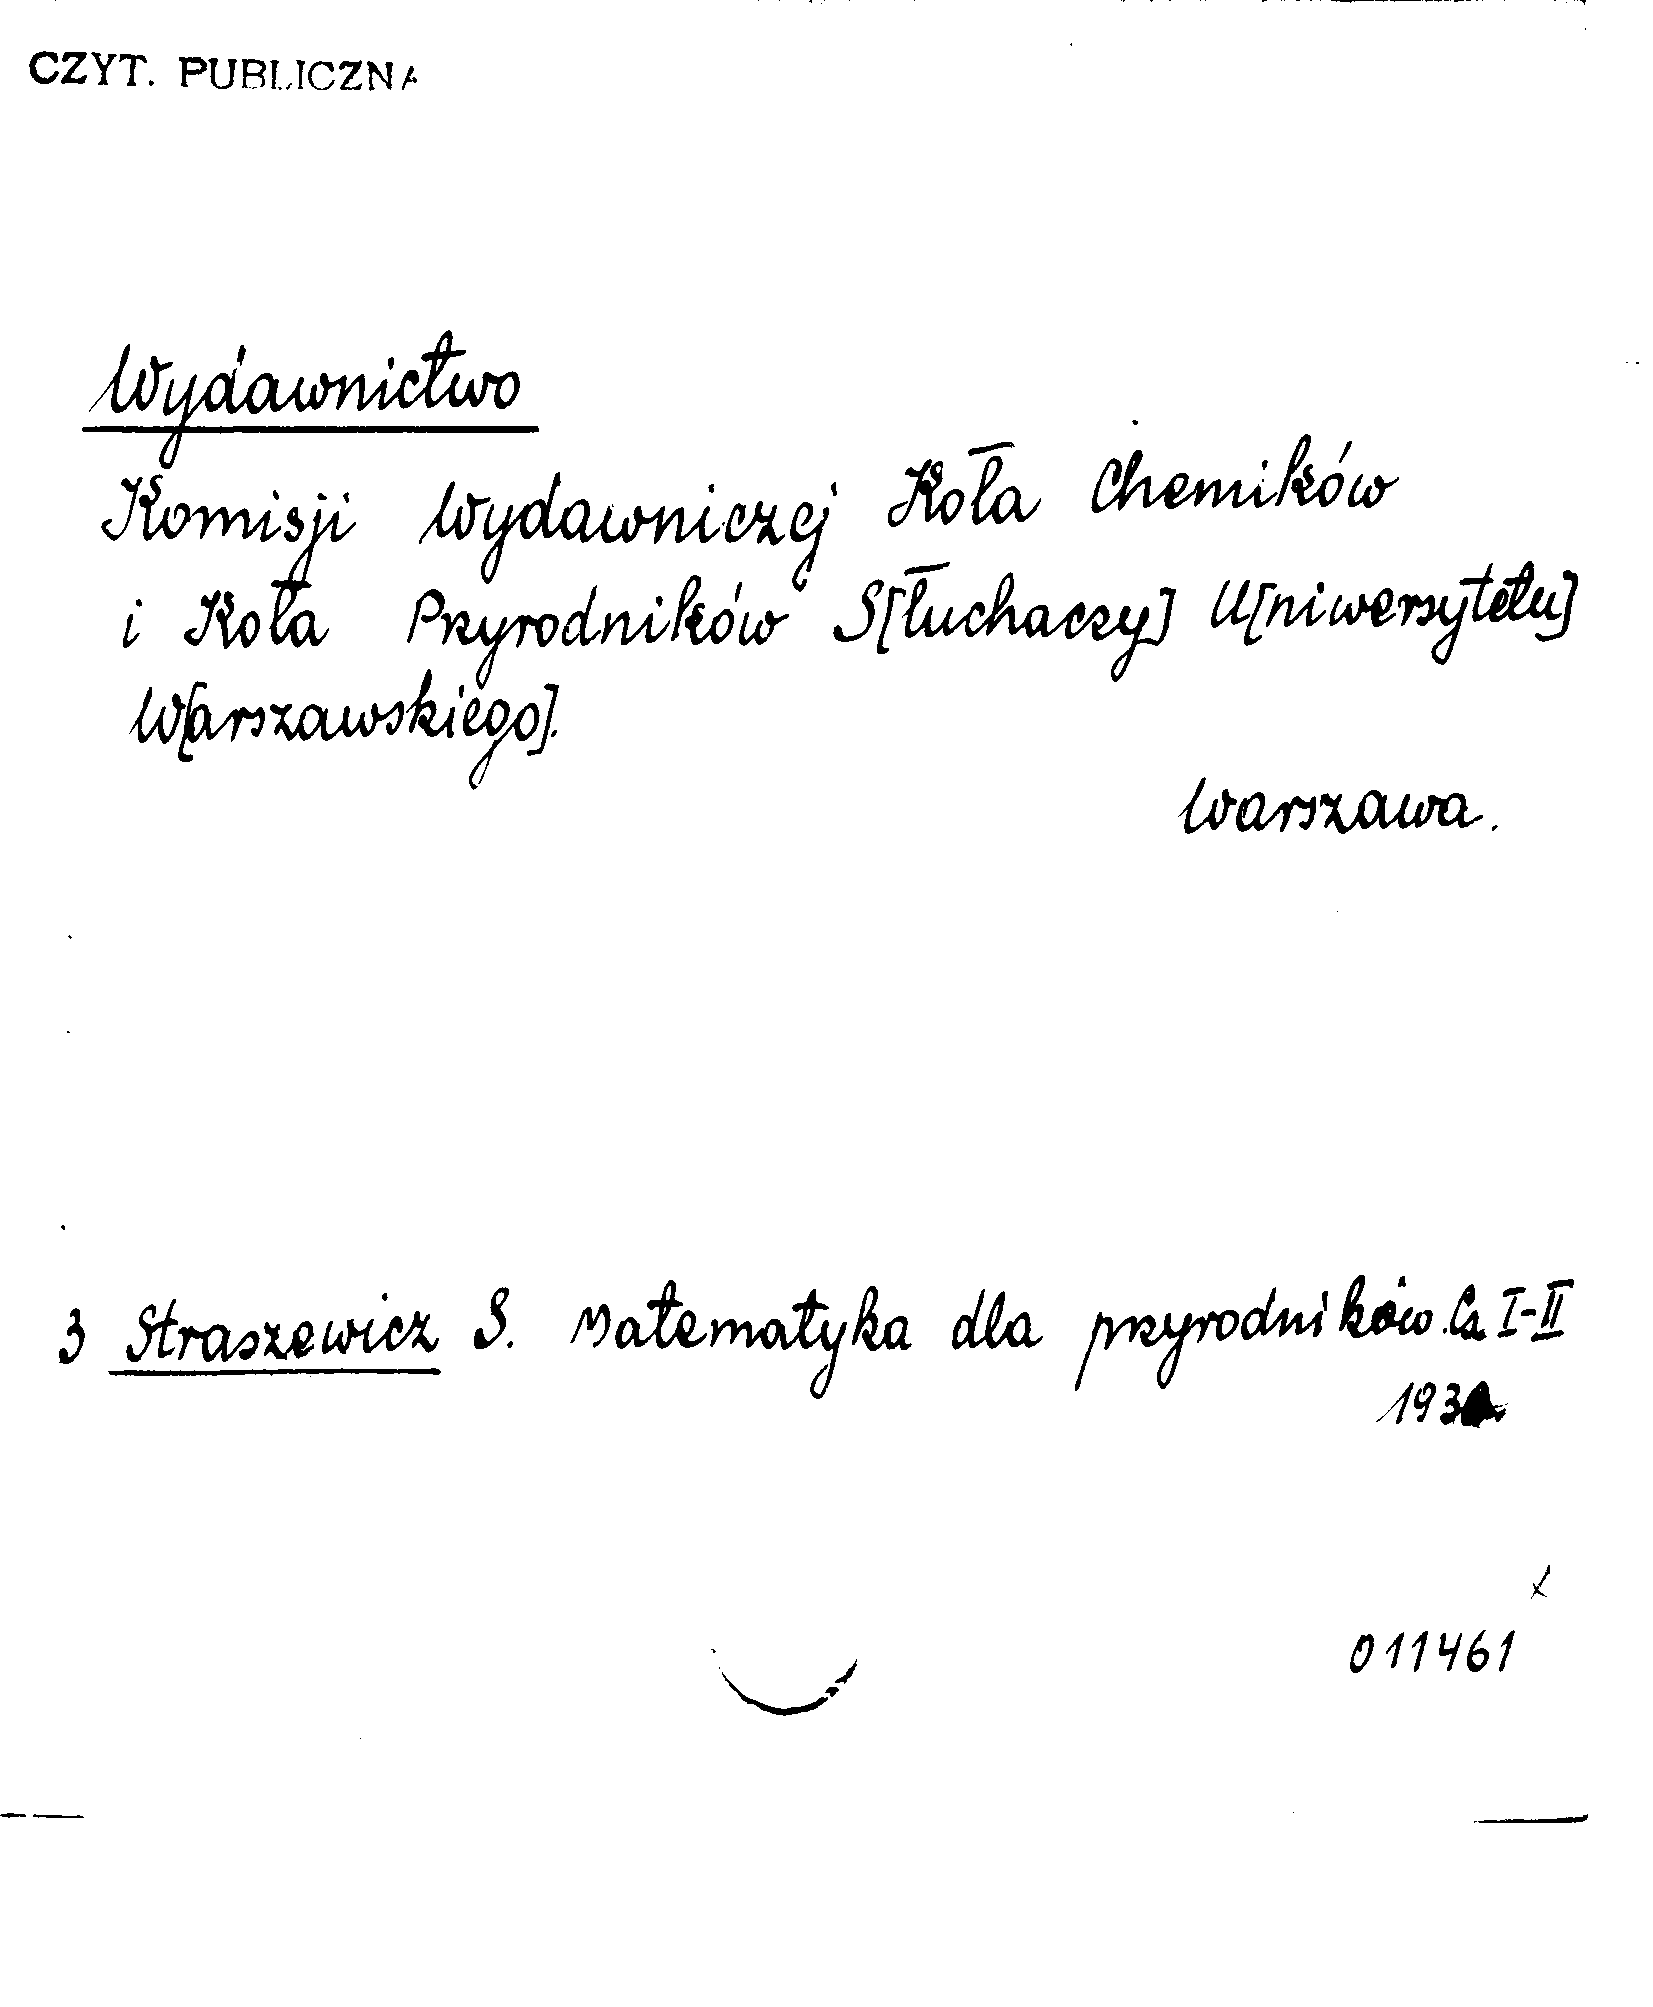 CZYT. PUBLICZNA
Wydawnictwo
Komisji Wydawniczej Koła Chemików
i Koła Przyrodników S[łuchaczy] U[niwersytetu]
W[arszawskiego].
Warszawa.
3 Straszewicz S. Matematyka dla przyrodników. Cz. I-II
x
011461